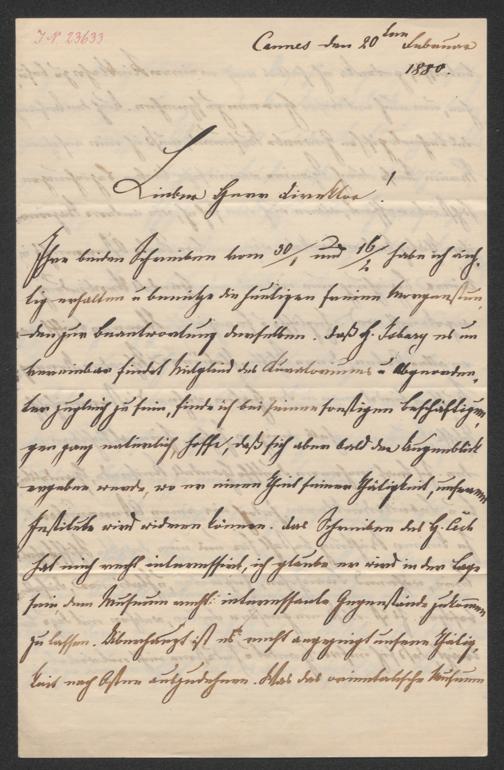 I.N. 23633
Cannes den 20ten Februar
1880.
Lieber Herr Direktor!
Ihre beiden Schreiben vom 30/1 und 16/2 habe ich rich-
tig erhalten u benütze die heutigen freien Morgenstun-
den zur Beantwortung derselben. Daß H. Isbary es un
vereinbar findet Mitglied des Curatoriums u Abgeordne-
ter zugleich zu sein, finde ich bei seinen sonstigen Beschäftigun-
gen ganz natürlich, hoffe, daß sich aber bald der Augenblick
ergeben werde, wo er einen Theil seiner Thätigkeit, unserem
Institute wird widmen können. Das Schreiben des H.
hat mich recht interessirt, ich glaube er wird in der Lage
sein dem Museum recht interessante Gegenstände zukommen
zu lassen. Überhaupt ist es recht angezeigt unsere Thätig-
keit nach Osten auszudehnen. Was das orientalische Museum